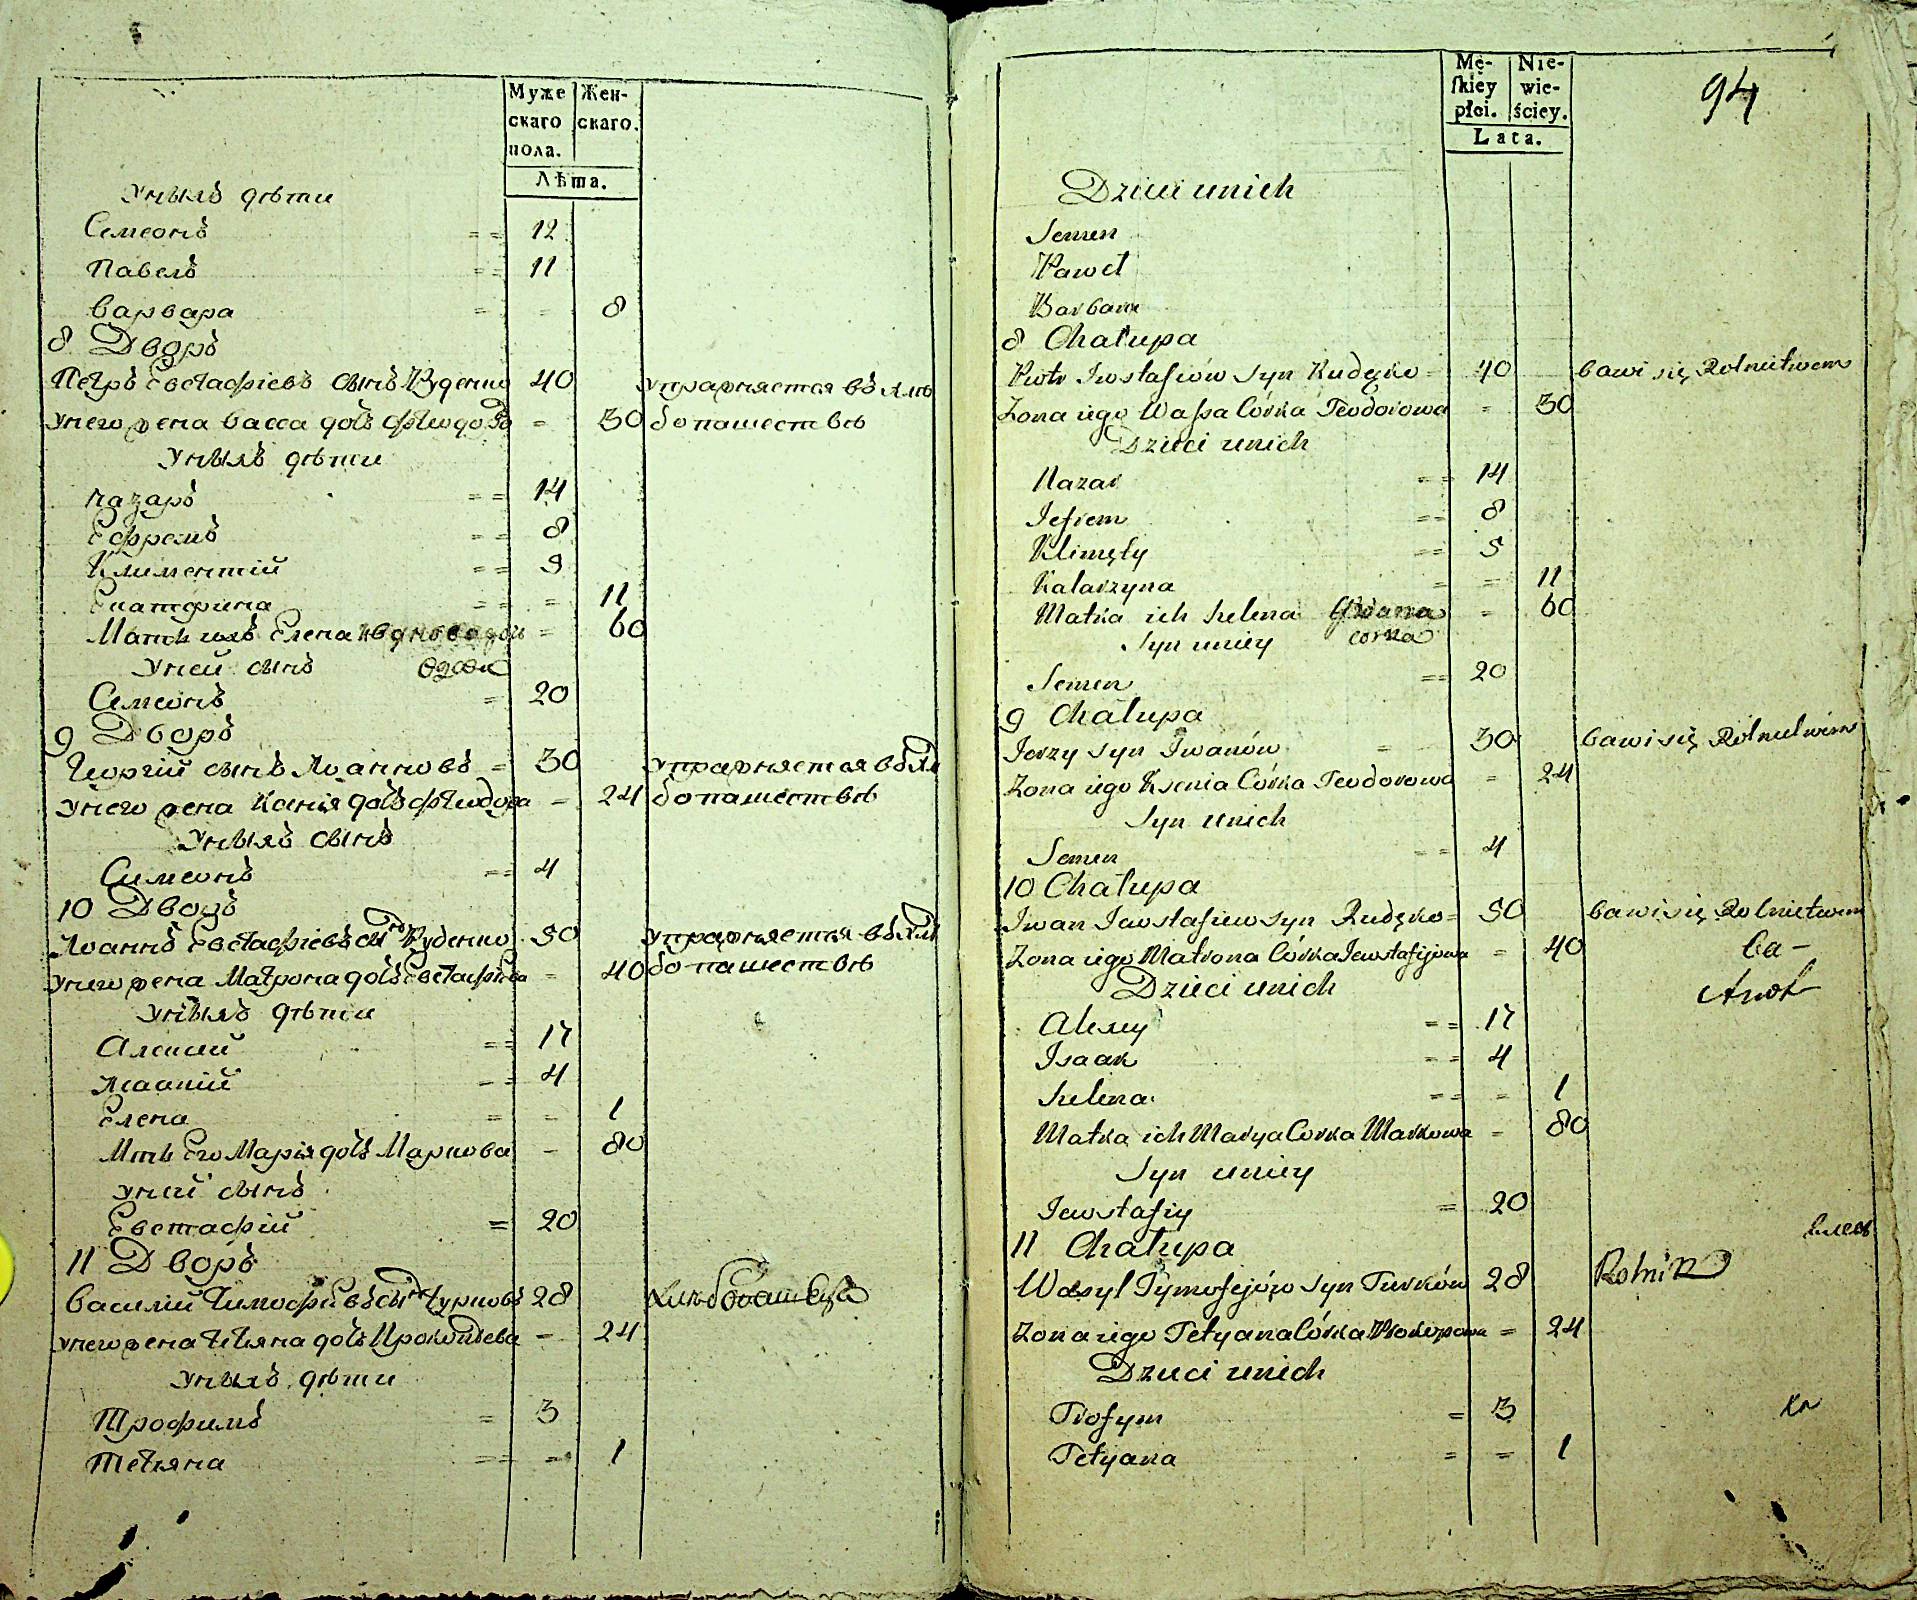 Муже Жен-
скаго скаго.
пола.
Лѣта.
У нихъ дѣти
Семеонъ = = 12
Павелъ = = 11
Варвара = = 8
8 Дворъ
Петръ Евстафіевъ сынъ Руденко 40 упражняется въ хлѣ
у него жена Васса дочь Ѳеодо = 30 бопашествѣ
У нихъ дѣти
Назаръ = = 14
Ефремъ = = 8
Климентій = =
Екатерина = = = 11
Мать ихъ Елена = 60
У ней сынъ
Семеонъ = 20
9 Дворъ
Георгій сынъ Іоанновъ = 30 упражняется в хлѣ
у него жена Ксенія дочь Ѳеодора = 24 бопашествѣ
У нихъ сынъ
Симеонъ = = 4
10 Дворъ
Іоаннъ Евстафіевъ сынъ Руденко 50 упражняется в хлѣ
у него жена Матрона дочь Евстафіева = 40 бопашествѣ
У нихъ дѣти
Алексій = = 17
Ісаакій = = 4
Елена = = 1
Мть Его Марія дочь Маркова = 80
У ней сынъ
Евстафій = 20
11 Дворъ
Василій Тимофіевъ сынъ Турковъ 28 хлѣбопашецъ
у него жена Тетіяна дочь Прокопіева = 24
У нихъ дѣти
Трофимъ = 3
Тетіяна = = = 1
Mę- Nie-
skiey wie-
płci. ściey.
Lata.
94
Dzieci u nich
Semen
Paweł
Barbara
8 Chałupa
Piotr Jwstafiów syn Rudęko = 40 bawi się Rolnictwem
Zona iego Wassa Córka Teodorowa = 30
Dzieci u nich
Nazar = = 14
Jefrem = = 8
Klimęty = = 5
Katarzyna = = 11
Matka ich Helena Iwana = 60
Syn u niey corka
Semen = = 20
9 Chałupa
Jerzy syn Iwanów = 30 bawi się Rolnictwem
Zona iego Ksenia Córka Teodorowa = 24
Syn u nich
Semen = = 4
10 Chałupa
Iwan Jewstafiew syn Rudęko = 50 bawi się Rolnictwem
Zona iego Matrona Córka Jewstafijowa = 40
Dzieci u nich
Alexey = = 17
Isaak = = 4
Helena = = = 1
Matka ich Marya Corka Markowa = 80
Syn u niey
Jewstafiy = 20
11 Chałupa
Wasyl Tymofejów syn Turków 28 Rolnik
Zona iego Tetyana Córka Prokopowa = 24
Dzieci u nich
Trofym = 3
Tetyana = = 1